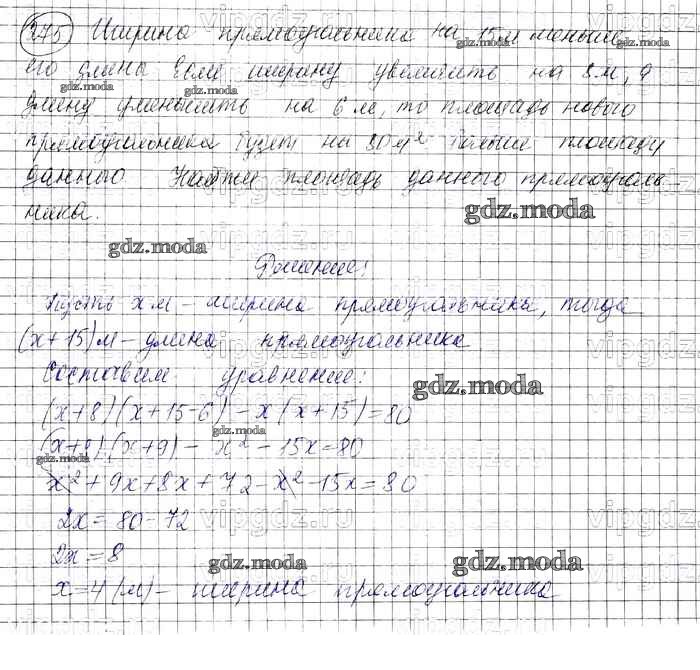 375 Ширина прямоугольника на 15м меньше
его длины Если ширину увеличить на 8 м, а
gdz.moda gdz.moda
длину уменьшить на 6 м, то площадь нового
прямоугольника будет на 80 м² больше площади
данного Найти площадь данного прямоуголь
ника. gdz.moda
gdz.moda
Решение:
Пусть x м - ширина прямоугольника, тогда
(x+15)м - длина прямоугольника
Составим уравнение:
gdz.moda
(x+8)(x+15-6) - x(x+15)=80
gdz.moda
(x+8)(x+9) - x² - 15x=80
gdz.moda
x² + 9x+8x+72-x²-15x=80
2x= 80-72
2x=8
gdz.moda gdz.moda
x=4 (м) - ширина прямоугольника
vipgdz.ru